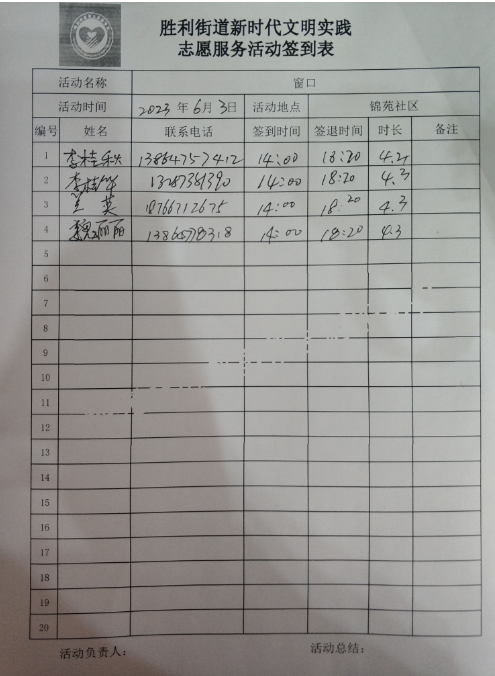 胜利街道新时代文明实践
志愿服务活动签到表
活动名称 窗口
活动时间 2023 年 6 月 3 日 活动地点 锦苑社区
编号 姓名 联系电话 签到时间 签退时间 时长 备注
1 李桂秋 13864757412 14:00 18:20 4.3
2 李桂华 14:00 18:20 4.3
3 兰英 18766712675 14:00 18:20 4.3
4 魏丽丽 14:00 18:20 4.3
5
6
7
8
9
10
11
12
13
14
15
16
17
18
19
20
活动负责人： 活动总结：